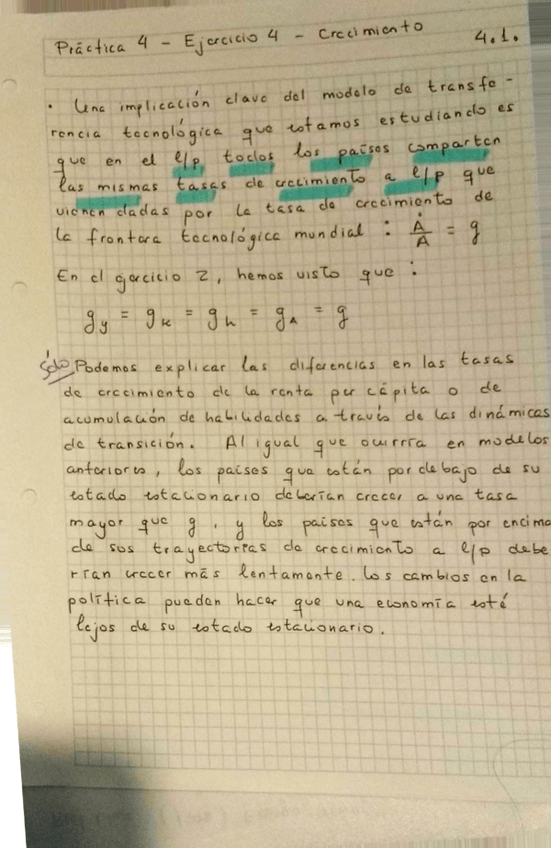 Práctica 4 - Ejercicio 4 - Crecimiento 4.1.
· Una implicación clave del modelo de transfe-
rencia tecnológica que estamos estudiando es
que en el e/p todos los países comparten
las mismas tasas de crecimiento a e/p que
vienen dadas por la tasa de crecimiento de
la frontera tecnológica mundial : Ȧ/A = g
En el ejercicio 2, hemos visto que :
gy = gk = gh = gA = g
Sólo Podemos explicar las diferencias en las tasas
de crecimiento de la renta per cápita o de
acumulación de habilidades a través de las dinámicas
de transición. Al igual que ocurría en modelos
anteriores, los países que están por debajo de su
estado estacionario deberían crecer a una tasa
mayor que g, y los países que están por encima
de sus trayectorias de crecimiento a e/p debe
rían crecer más lentamente. Los cambios en la
política pueden hacer que una economía esté
lejos de su estado estacionario.